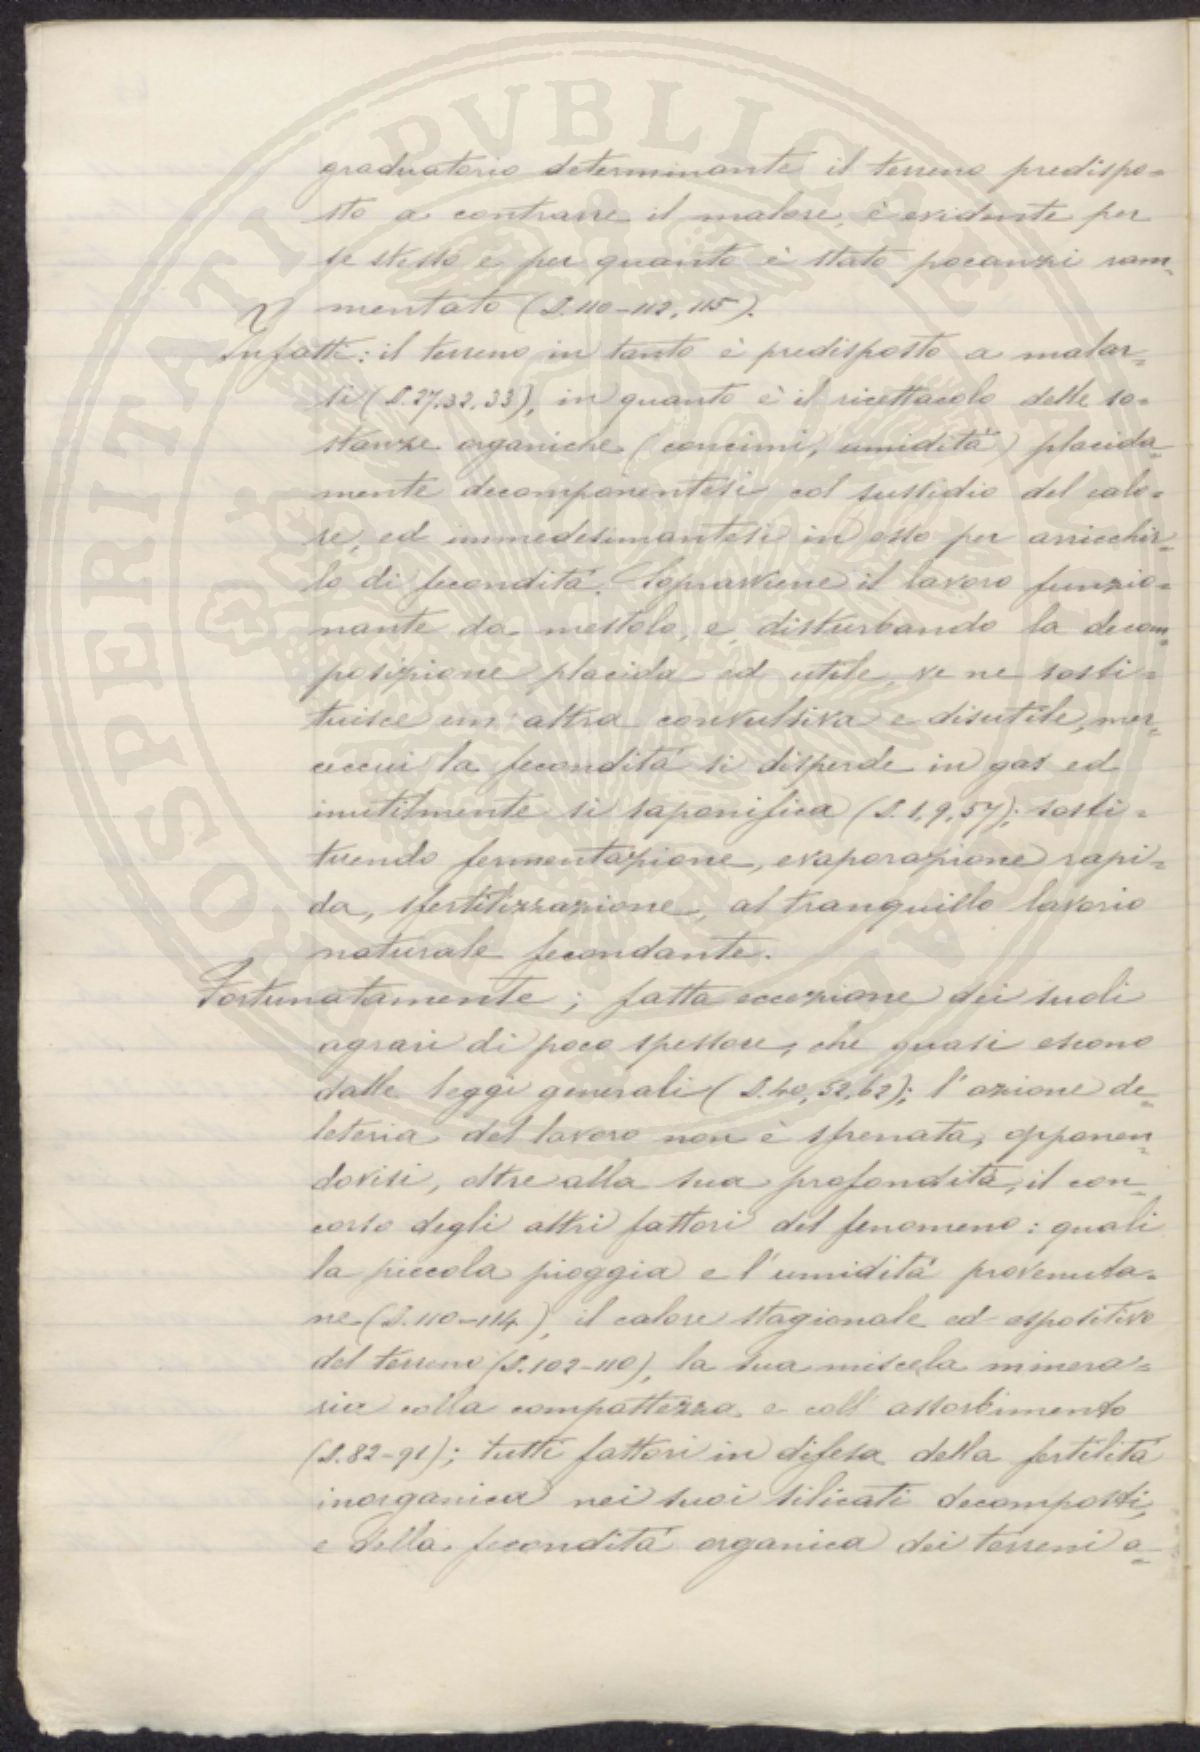 graduatorio determinante il terreno predispo=
sto a contrarre il malore, è evidente per
se stesso e per quanto è stato pocanzi ram=
mentato (S. 110-112, 115).
Infatti: il terreno in tanto è predisposto a malar=
si (S. 27, 32, 33), in quanto è il ricettacolo delle so=
stanze organiche (concimi, umidità) placida=
mente decomponentesi col sussidio del calo=
re, ed immedesimantesi in esso per arricchir=
lo di fecondità. Sopravviene il lavoro funzio=
nante da mestolo, e, disturbando la decom=
posizione placida ed utile, ve ne sosti=
tuisce un'altra convulsiva e disutile, mer=
ceccui la fecondità si disperde in gas ed
inutilmente si saponifica (S. 1, 9, 57); sosti=
tuendo fermentazione, evaporazione rapi=
da, sfertilizzazione, al tranquillo lavorio
naturale fecondante.
Fortunatamente; fatta eccezione dei suoli
agrari di poco spessore, che quasi escono
dalle leggi generali (S. 40, 52, 62); l'azione de=
leteria del lavoro non è sfrenata, opponen=
dovisi, oltre alla sua profondità, il con=
corso degli altri fattori del fenomeno: quali
la piccola pioggia e l'umidità provenuta=
ne (S. 110-114), il calore stagionale ed espositivo
del terreno (S. 102-110), la sua miscela minera=
ria colla compattezza e coll'assorbimento
(S. 82-91); tutti fattori in difesa della fertilità
inorganica nei suoi silicati decomposti,
e della fecondità organica dei terreni a=
PROSPERITATI PVBLICAE